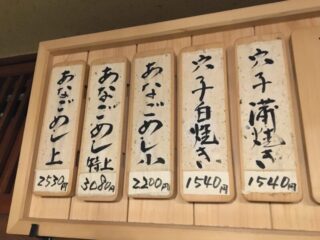 穴子蒲焼き
1540円
穴子白焼き
1540円
あなごめし小
2200円
あなごめし特上
3080円
あなごめし上
2530円